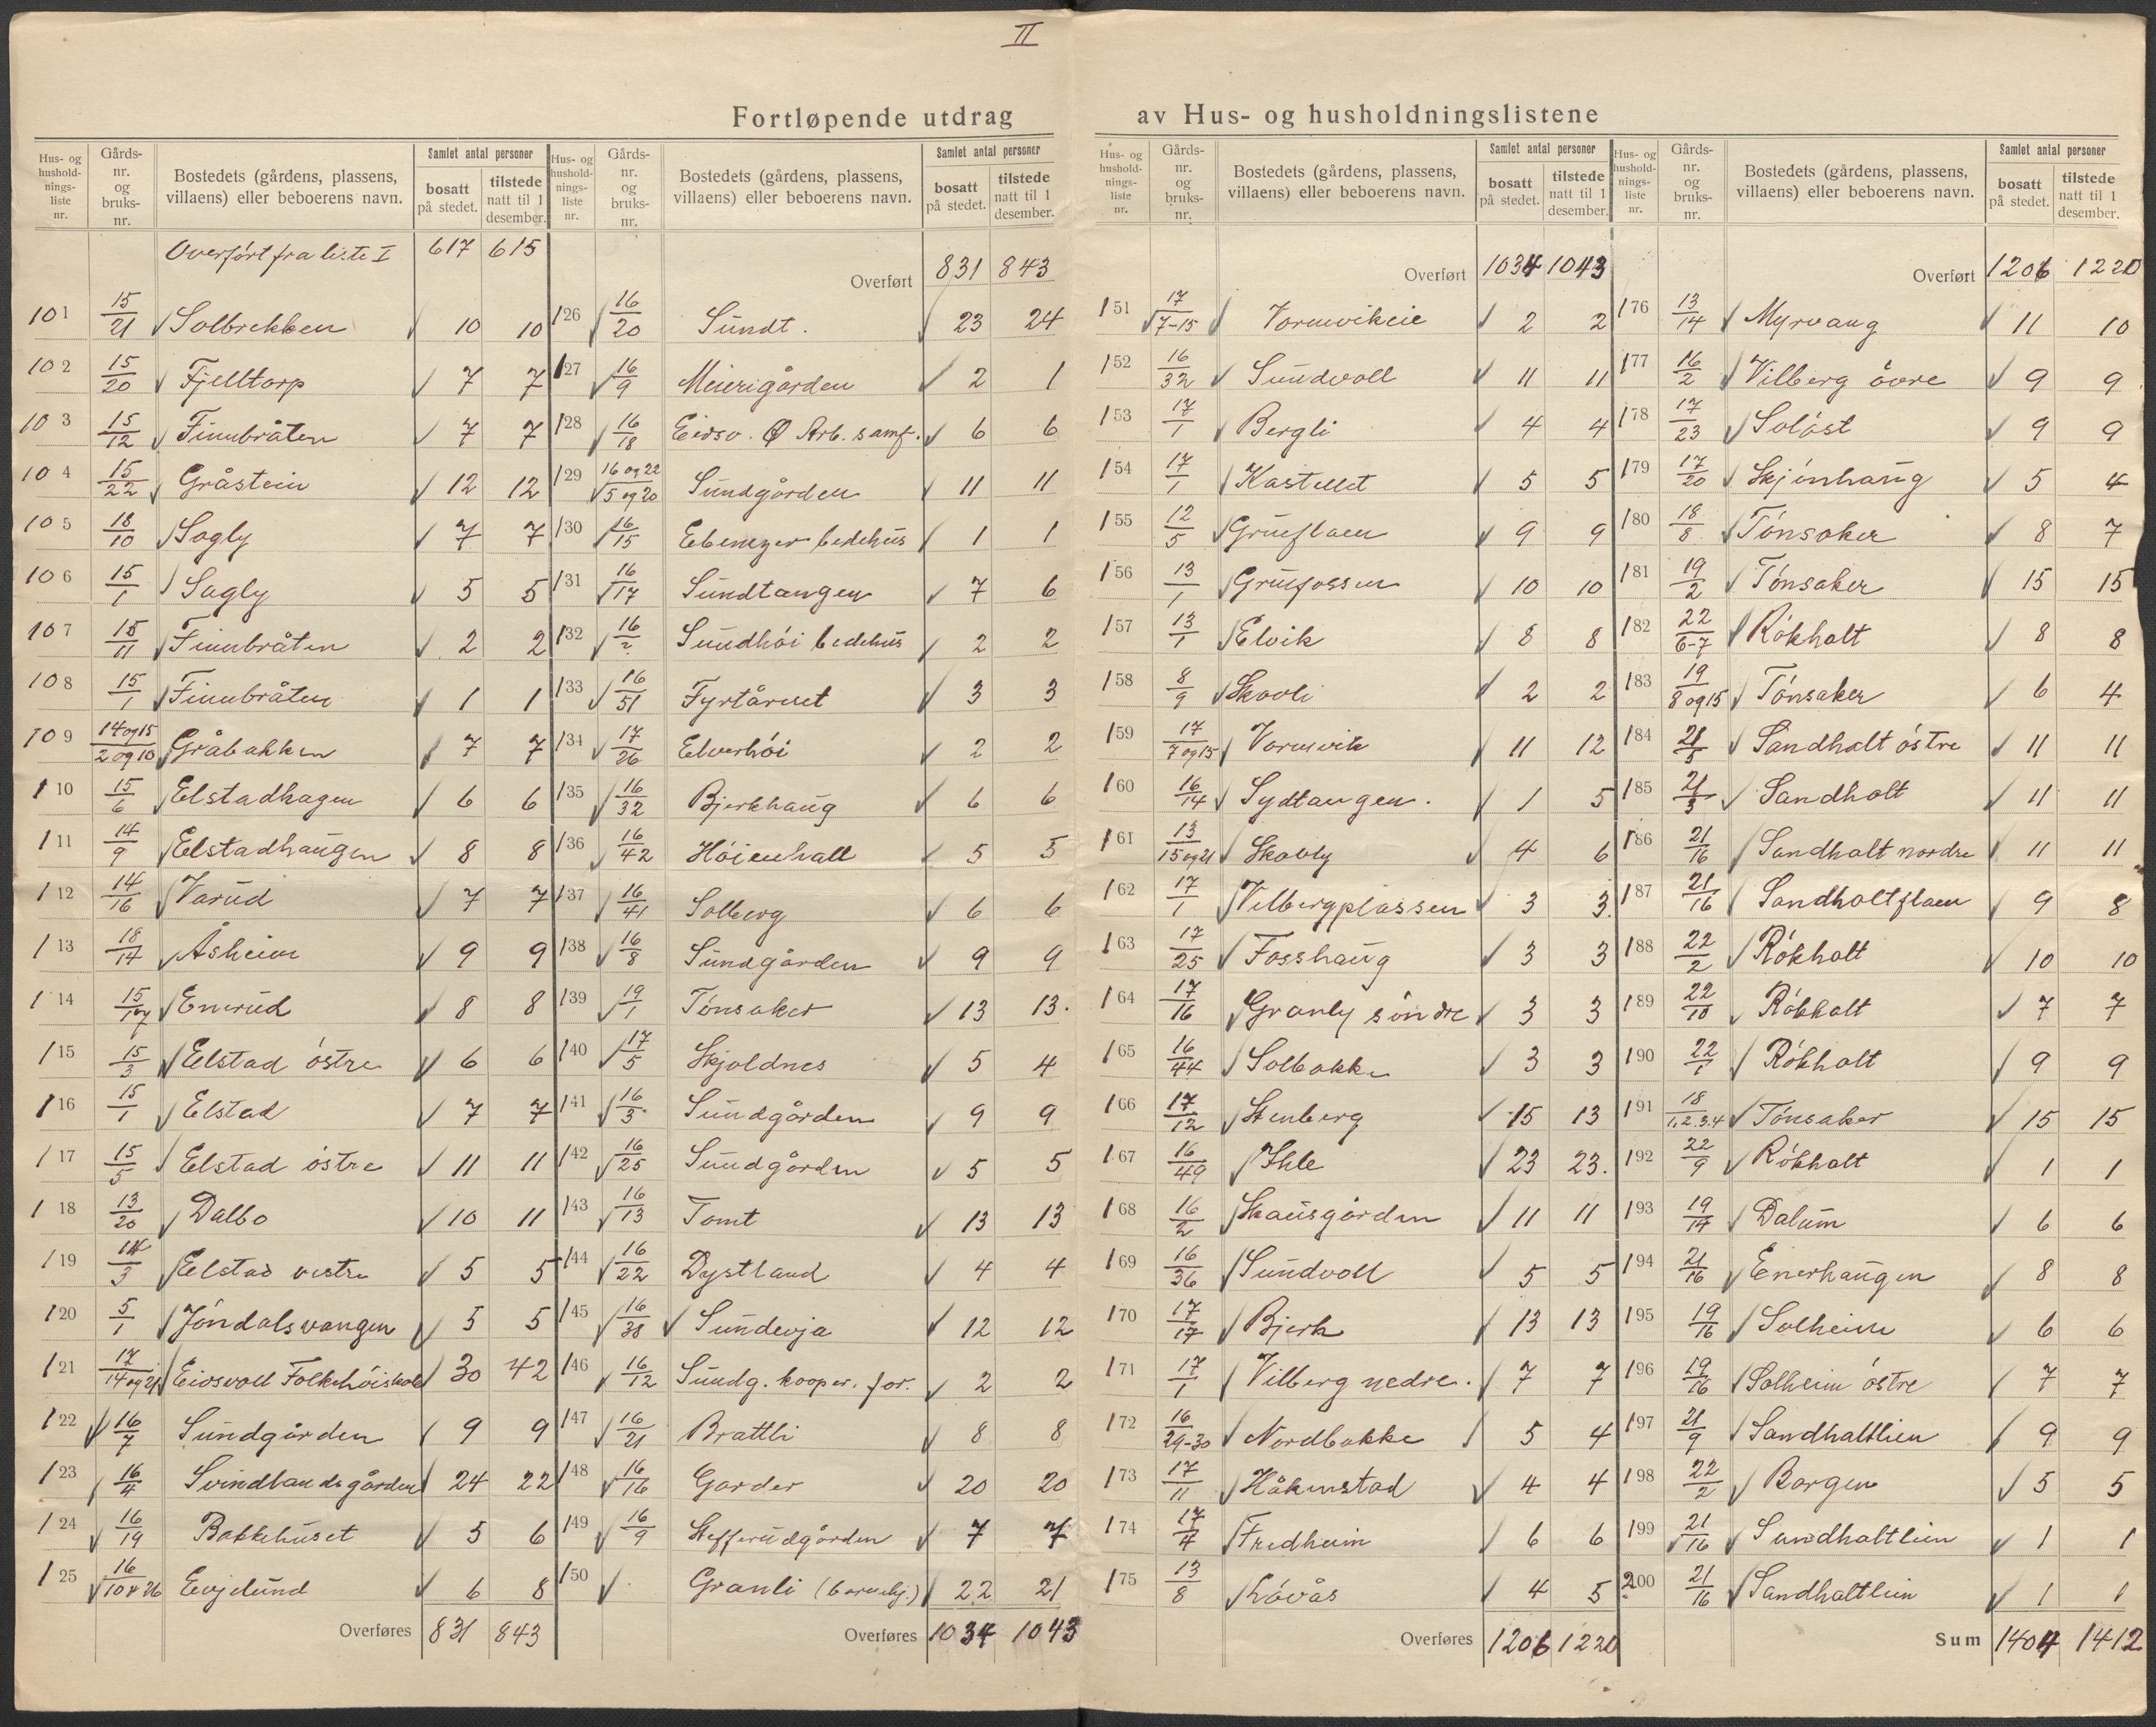 II
Fortløpende utdrag av Hus- og husholdningslistene
Hus- og husholdnings-liste nr. | Gårds-nr. og bruks-nr. | Bostedets (gårdens, plassens, villaens) eller beboerens navn. | Samlet antal personer | bosatt på stedet. | tilstede natt til 1 desember.
Overført fra liste I 617 615
101 15/21 Solbrekken 10 10
102 15/20 Fjelltorp 7 7
103 15/12 Finnbråten 7 7
104 15/22 Gråstein 12 12
105 18/10 Sagly 7 7
106 15/1 Sagly 5 5
107 15/11 Finnbråten 2 2
108 15/1 Finnbråten 1 1
109 14og15/2og10 Gråbakken 7 7
110 15/6 Elstadhagen 6 6
111 14/9 Elstadhaugen 8 8
112 14/16 Varud 7 7
113 18/14 Åsheim 9 9
114 15/1og7 Enerud 8 8
115 15/3 Elstad östre 6 6
116 15/1 Elstad 7 7
117 15/5 Elstad östre 11 11
118 13/20 Dalbo 10 11
119 14/3 Elstad vestre 5 5
120 5/1 Jöndalsvangen 5 5
121 17/14og21 Eidsvoll Folkehöiskole 30 42
122 16/7 Sundgården 9 9
123 16/4 Svindlandsgården 24 22
124 16/19 Bakkehuset 5 6
125 16/10&26 Evjelund 6 8
Overføres 831 843
Hus- og husholdnings-liste nr. | Gårds-nr. og bruks-nr. | Bostedets (gårdens, plassens, villaens) eller beboerens navn. | Samlet antal personer | bosatt på stedet. | tilstede natt til 1 desember.
Overført 831 843
126 16/20 Sundt. 23 24
127 16/9 Meierigården 2 1
128 16/18 Eidsv. Ø Arb. samf. 6 6
129 16 og 22/5 og 20 Sundgården 11 11
130 16/15 Ebenezer bedehus 1 1
131 16/17 Sundtangen 7 6
132 16/2 Sundhöi bedehus 2 2
133 16/51 Fyrtårnet 3 3
134 17/26 Elverhöi 2 2
135 16/32 Bjerkhaug 6 6
136 16/42 Höienhall 5 5
137 16/41 Solberg 6 6
138 16/8 Sundgården 9 9
139 19/1 Tönsaker 13 13.
140 17/5 Skjoldnes 5 4
141 16/3 Sundgården 9 9
142 16/25 Sundgården 5 5
143 16/13 Tomt 13 13
144 16/22 Dystland 4 4
145 16/38 Sundevja 12 12
146 16/12 Sundg. kooper. for. 2 2
147 16/21 Brattli 8 8
148 16/16 Garder 20 20
149 16/9 Stefferudgården 7 7
150 Granli (barnehj.) 22 21
Overføres 1034 1043
Hus- og husholdnings-liste nr. | Gårds-nr. og bruks-nr. | Bostedets (gårdens, plassens, villaens) eller beboerens navn. | Samlet antal personer | bosatt på stedet. | tilstede natt til 1 desember.
Overført 1034 1043
151 17/7-15 Vormvikeie 2 2
152 16/32 Sundvoll 11 11
153 17/1 Bergli 4 4
154 17/1 Kastellet 5 5
155 12/5 Grueflaen 9 9
156 13/1 Gruefossen 10 10
157 13/1 Elvik 8 8
158 8/9 Skovli 2 2
159 17/7og15 Vormvik 11 12
160 16/14 Sydtangen. 1 5
161 13/15og21 Skovly 4 6
162 17/1 Vilbergplassen 3 3.
163 17/25 Fosshaug 3 3
164 17/16 Granly söndre 3 3
165 16/44 Solbakke 3 3
166 17/12 Stenberg 15 13
167 16/49 Ihle 23 23.
168 16/2 Skausgården 11 11
169 16/36 Sundvoll 5 5
170 17/17 Bjerk 13 13
171 17/1 Vilberg nedre. 7 7
172 16/29-30 Nordbakke 5 4
173 17/11 Håkenstad 4 4
174 17/4 Fredheim 6 6
175 13/8 Lövås 4 5
Overføres 1206 1220
Hus- og husholdnings-liste nr. | Gårds-nr. og bruks-nr. | Bostedets (gårdens, plassens, villaens) eller beboerens navn. | Samlet antal personer | bosatt på stedet. | tilstede natt til 1 desember.
Overført 1206 1220
176 13/14 Myrvang 11 10
177 16/2 Vilberg övre 9 9
178 17/23 Solöst 9 9
179 17/20 Skjönhaug 5 4
180 18/8 Tönsaker 8 7
181 19/2 Tönsaker 15 15
182 22/6-7 Rökholt 8 8
183 19/8og15 Tönsaker 6 4
184 21/5 Sandholt östre 11 11
185 21/3 Sandholt 11 11
186 21/16 Sandholt nordre 11 11
187 21/16 Sandholtflaen 9 8
188 22/2 Rökholt 10 10
189 22/10 Rökholt 7 7
190 22/1 Rökholt 9 9
191 18/1,2,3,4 Tönsaker 15 15
192 22/9 Rökholt 1 1
193 19/14 Dalum 6 6
194 21/16 Enerhaugen 8 8
195 19/16 Solheim 6 6
196 19/16 Solheim östre 7 7
197 21/9 Sandholtlien 9 9
198 22/2 Borgen 5 5
199 21/16 Sandholtlien 1 1
200 21/16 Sandholtlien 1 1
Sum 1404 1412